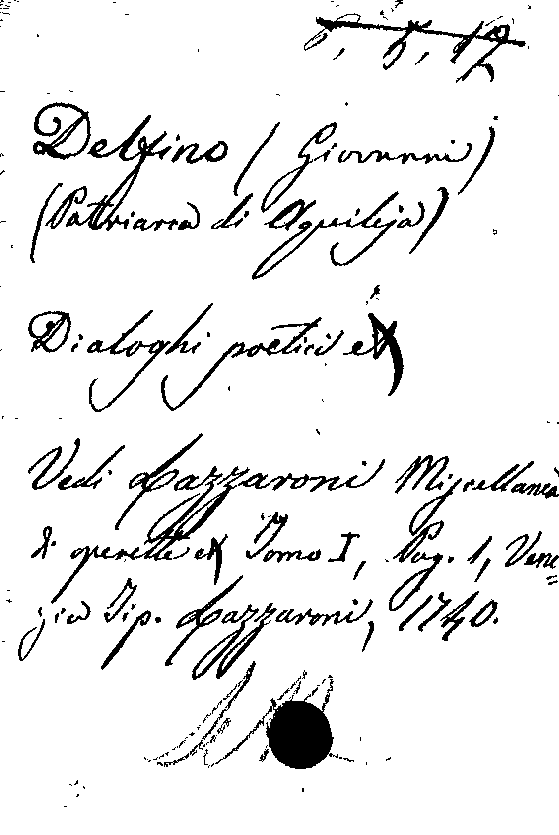 5, 12
Delfino (Giovanni)
(Patriarca di Aquileja)
Dialoghi poetici ec
Vedi Lazzaroni Miscellanea
di operette ec Tomo I, Pag. 1, Vene
zia Tip. Lazzaroni, 1740.